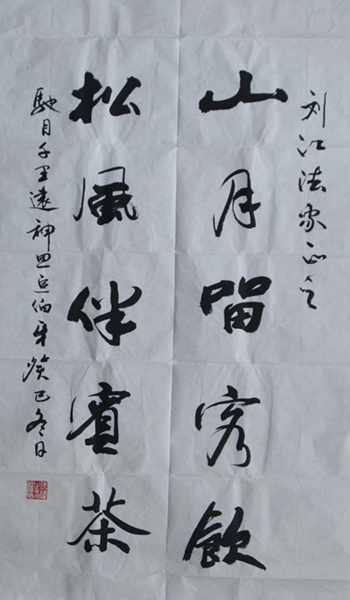 刘江法家正之
山月留客飲
松風伴賓茶
馳目千里遠神思追伯牙癸巳冬日